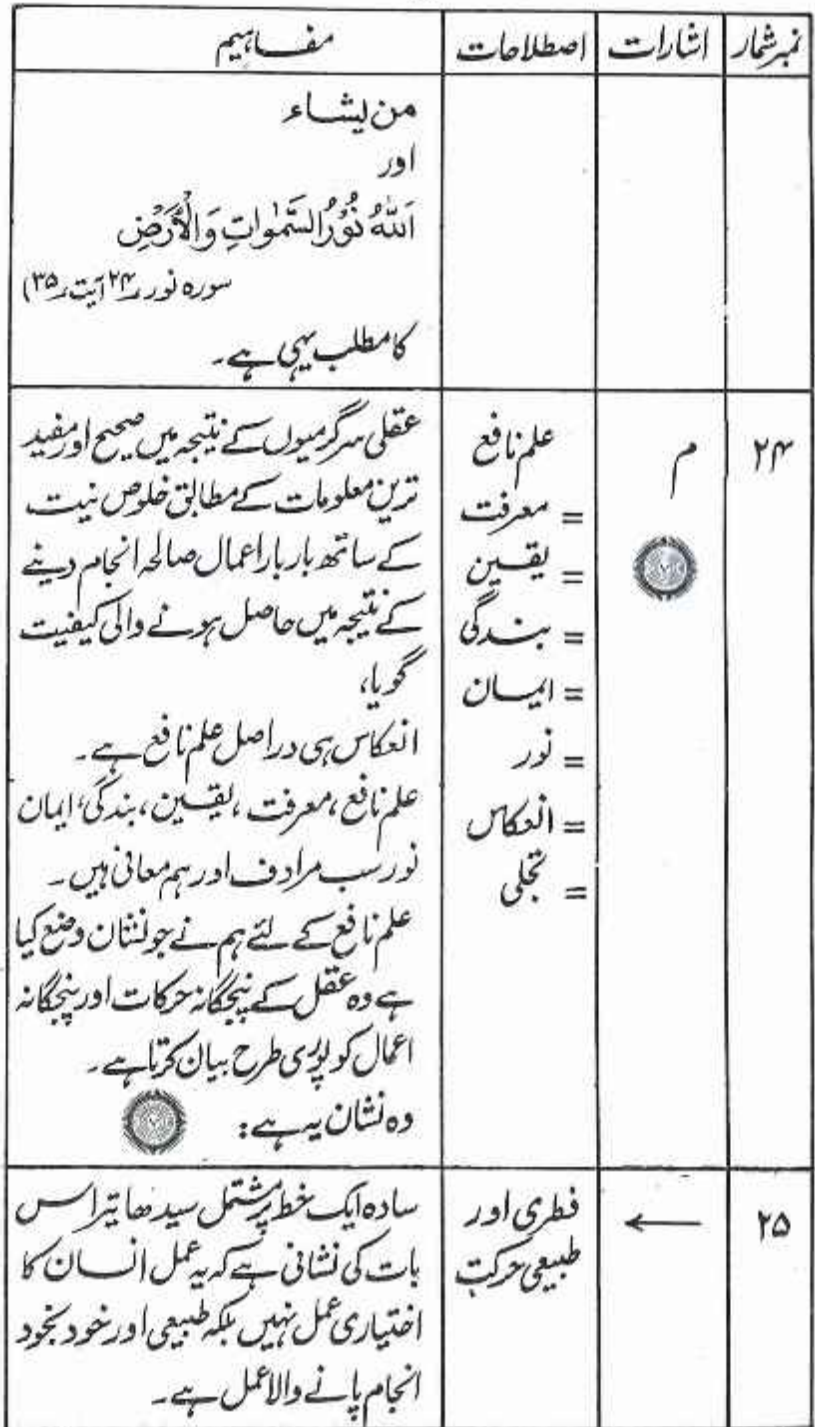 نمبرشمار اشارات اصطلاحات مفاہیم
من یشاء
اور
اَللّٰهُ نُوْرُ السَّمٰوٰاتِ وَالْاَرْضِ
سورہ نور ۲۴ آیت ۳۵)
کا مطلب یہی ہے۔
۲۴ م
علم نافع
= معرفت
= یقین
= بندگی
= ایمان
= نور
= انعکاس
= تجلی
عقلی سرگرمیوں کے نتیجہ میں صحیح اور مفید
ترین معلومات کے مطابق خلوص نیت
کے ساتھ بار بار اعمال صالحہ انجام دینے
کے نتیجہ میں حاصل ہونے والی کیفیت
گویا،
انعکاس ہی دراصل علم نافع ہے۔
علم نافع، معرفت، یقین، بندگی، ایمان
نور سب مرادف اور ہم معانی ہیں۔
علم نافع کے لئے ہم نے جو نشان وضع کیا
ہے وہ عقل کے پنجگانہ حرکات اور پنجگانہ
اعمال کو پوری طرح بیان کرتا ہے۔
وہ نشان یہ ہے:
۲۵ ←
فطری اور
طبیعی حرکت
سادہ ایک خط پر مشتمل سیدھا تیر اس
بات کی نشانی ہے کہ یہ عمل انسان کا
اختیاری عمل نہیں بلکہ طبیعی اور خود بخود
انجام پانے والا عمل ہے۔